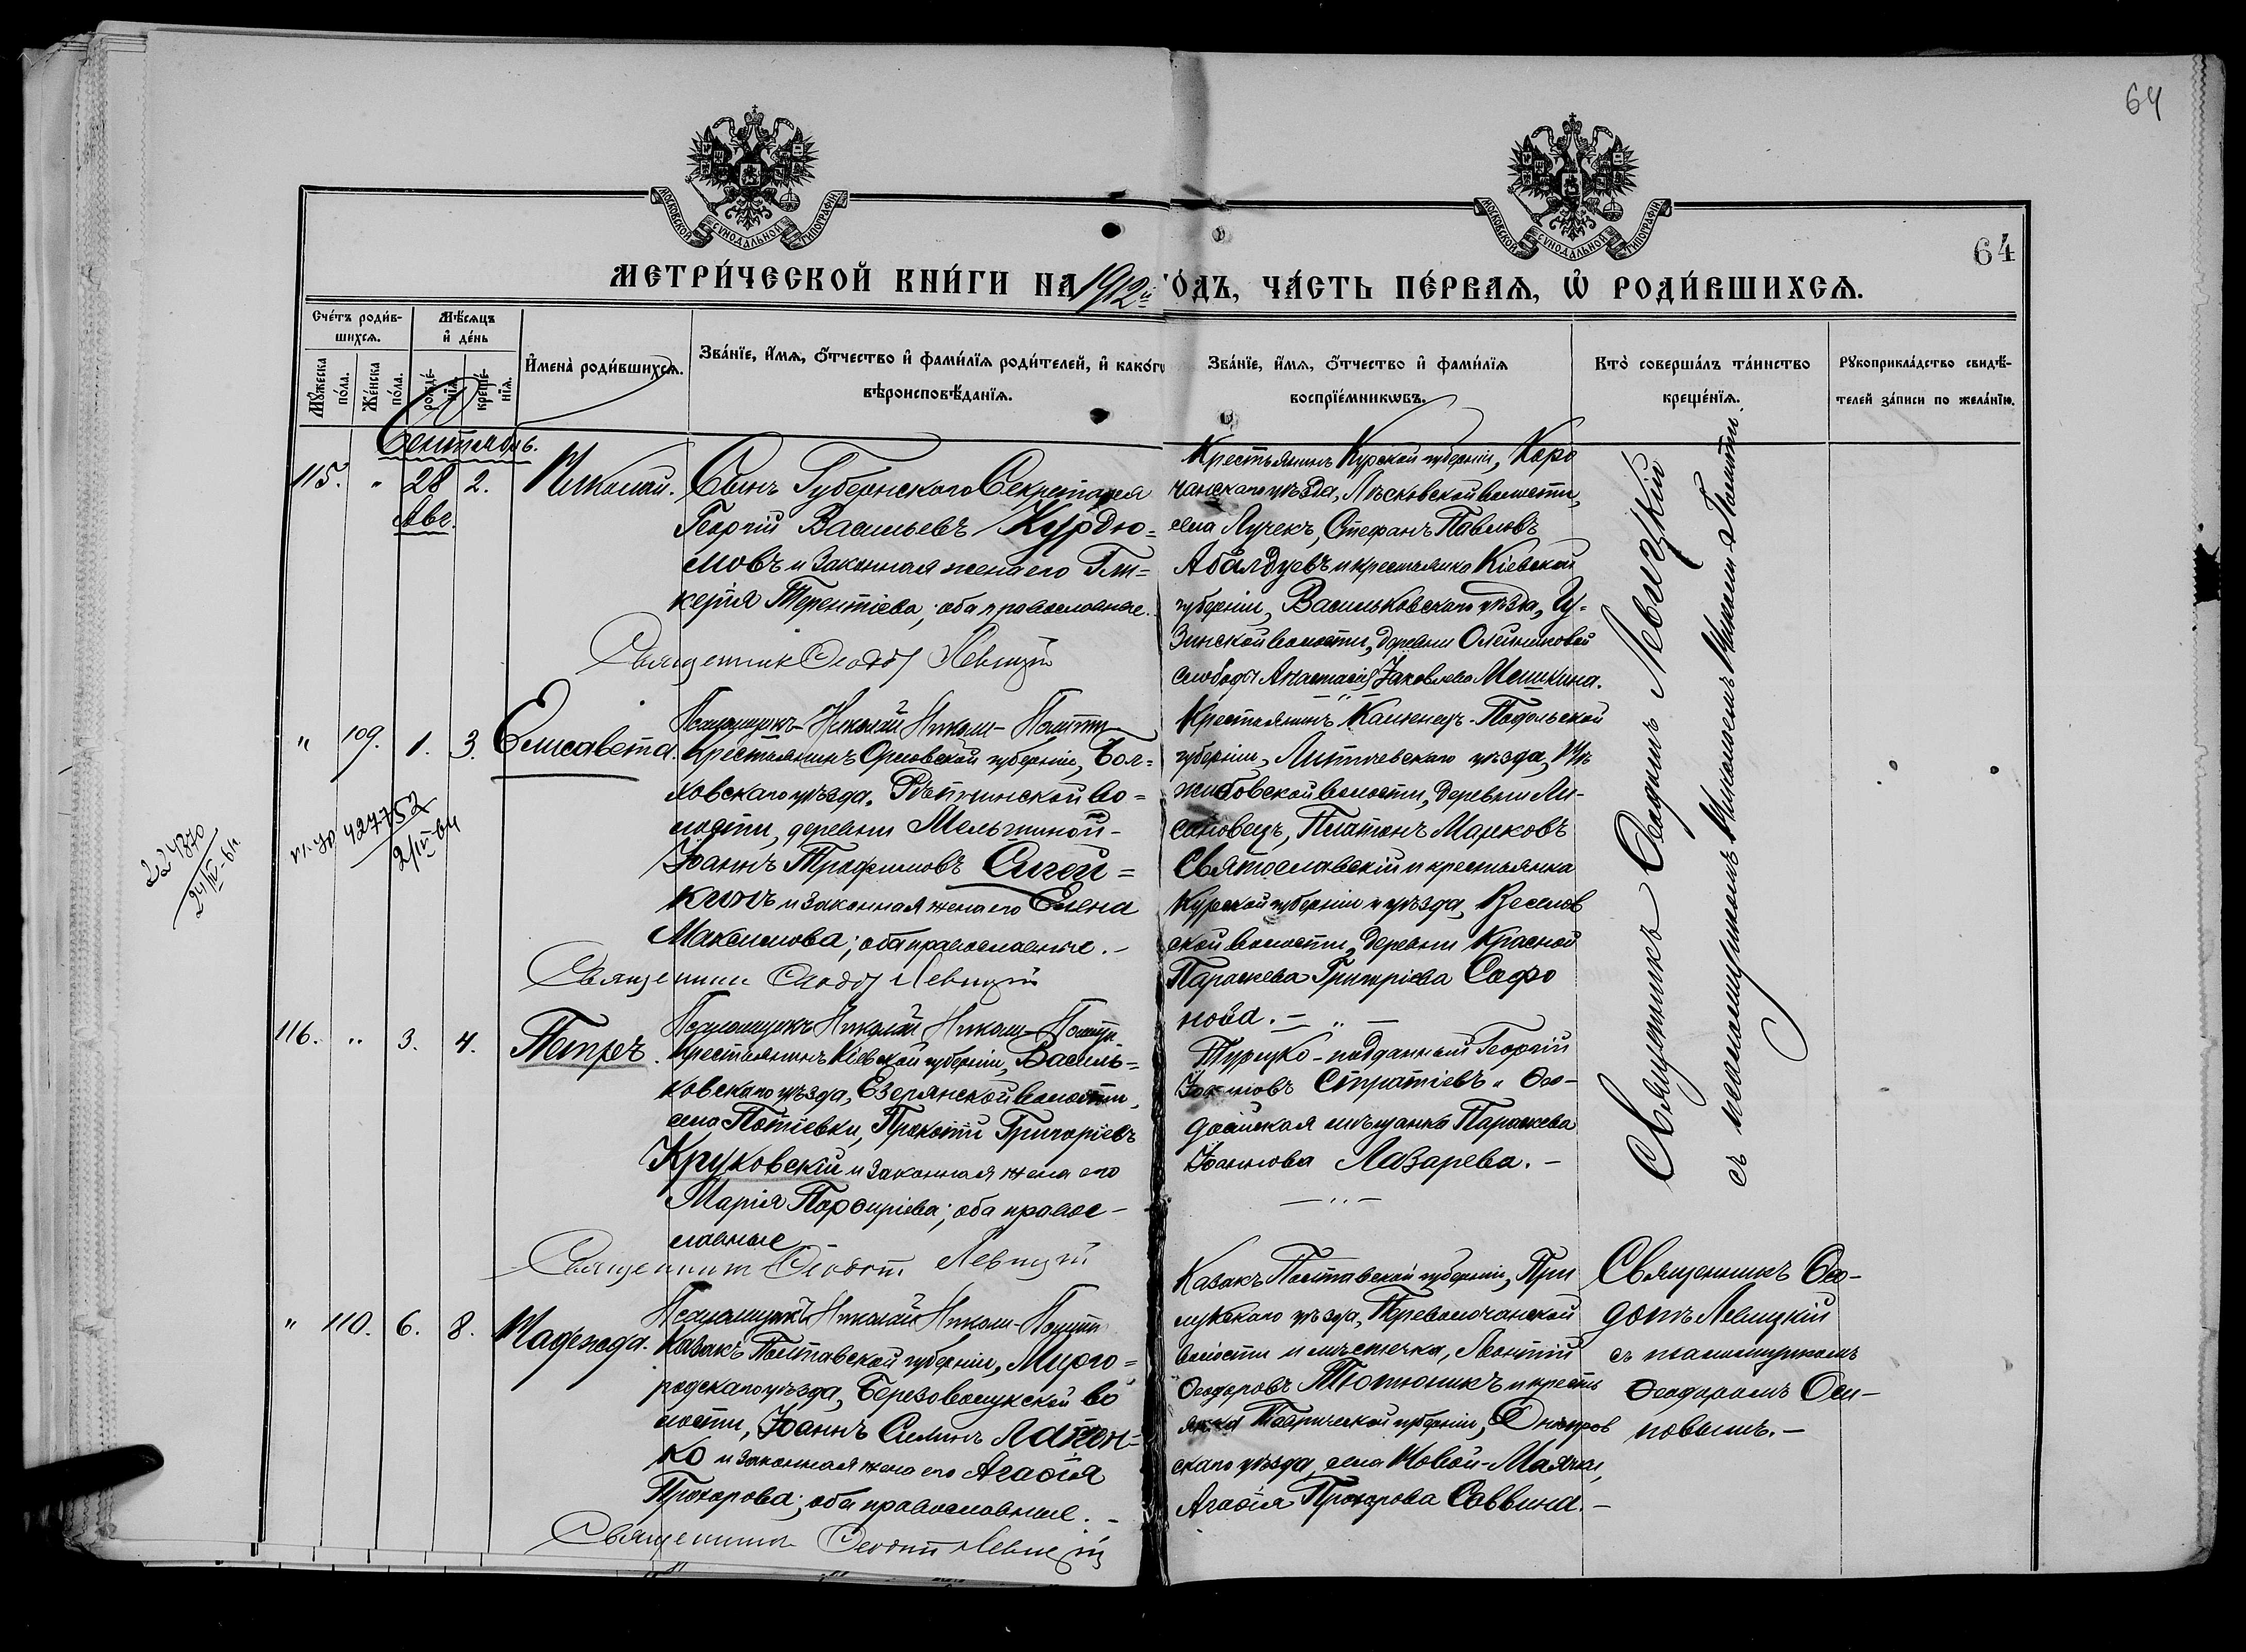 64
МОСКОВСКОЙ СѴНОДАЛЬНОЙ ТИПОГРАФІИ
МОСКОВСКОЙ СѴНОДАЛЬНОЙ ТИПОГРАФІИ
64
МЕТРИ́ЧЕСКОЙ КНИ́ГИ НА 1912й ГО́ДЪ, ЧА́СТЬ ПЕ́РВАѦ, Ѡ҆ РОДИ́ВШИХСѦ.
Сче́тъ роди́в-
шихсѧ.
Мꙋ́жеска по́ла.
Же́нска по́ла.
Мѣ́сѧцъ
и҆ де́нь
рожде́-
нїѧ.
креще́-
нїѧ.
И҆мена̀ роди́вшихсѧ.
Зва́нїе, и҆́мѧ, ѻ҆́тчество и҆ фами́лїѧ роди́телей, и҆ како́гѡ
вѣроисповѣ́данїѧ.
Зва́нїе, и҆́мѧ, ѻ҆́тчество и҆ фами́лїѧ
воспрїе́мникѡвъ.
Кто̀ соверша́лъ та́инство
креще́нїѧ.
Рꙋкоприкла́дство свидѣ́-
телей за́писи по жела́нїю.
Сентябрь.
115. " 28 2. Николай.
Авг.
Сынъ Губернскаго Секретаря
Георгій Васильевъ Курдю=
мовъ и законная жена его Гли=
керія Терентіева; оба православные.
Священник Ѳеодот Левицкій
Крестьянинъ Курской губерніи, Коро
чанскаго уѣзда, волости,
села Лучекъ, Стефанъ Павловъ
Абалдуевъ и крестьянка Кіевской
губерніи, Васильковскаго уѣзда,
волости, деревни Олейниковой
слободы Анастасія Іаковлева Мешкина.
" 109. 1. 3. Елисавета.
Псаломщикъ Николай Николи-Политти
Крестьянинъ Орловской губерніи, Бол=
ховскаго уѣзда, во=
лости, деревни
Іоаннъ Трофимовъ Сигей=
кинъ и законная жена его Елена
Максимова; оба православные. –
Священник Ѳеодот Левицкій
427752
2/IV 64
224870
24/IV-64
Крестьянинъ Каменецъ-Подольской
губерніи, Литичевскаго уѣзда, Ме
жибовской волости, деревни Ли-
сановецъ, Платонъ Марковъ
Святославскій и крестьянка
Курской губерніи и уѣзда, Веселов
ской волости, деревни Красной
Параскева Григоріева Сафо
нова. –
116. " 3. 4. Петръ.
Псаломщикъ Николай Николи-Политти
Крестьянинъ Кіевской губерніи, Василь=
ковскаго уѣзда, Езерянской волости,
села Потіевки, Прокопій Григоріевъ
Круковскій и законная жена его
Марія Порфиріева; оба право-
славные
Священник Ѳеодот Левицкій
Турецко-подданный Георгій
Іоанновъ Стратіевъ и Ѳео-
досійская мѣщанка Параскева
Іоаннова Лазарева. –
Священникъ Ѳеодотъ Левицкій
съ псаломщикомъ Николаемъ Николи-Политти.
" 110. 6. 8. Надежда.
Псаломщикъ Николай Николи-Политти
Казакъ Полтавской губерніи, Мирго=
родскаго уѣзда, Березоволукской во
лости, Іоаннъ Силинъ Лапен=
ко и законная жена его Агафія
Прохорова; оба православные. –
Священник Ѳеодот Левицкій
Казакъ Полтавской губерніи, При
лукскаго уѣзда, Переволочанской
волости и мѣстечка, Леонтій
Ѳеодоровъ Тютюникъ и кресть
янка Таврической губерніи, Днѣпров
скаго уѣзда, села Новой-Маячки,
Агафія Прохорова Саввина. –
Священникъ Ѳео-
дотъ Левицкій
съ псаломщикомъ
Ѳеодоромъ Оси-
повымъ. –